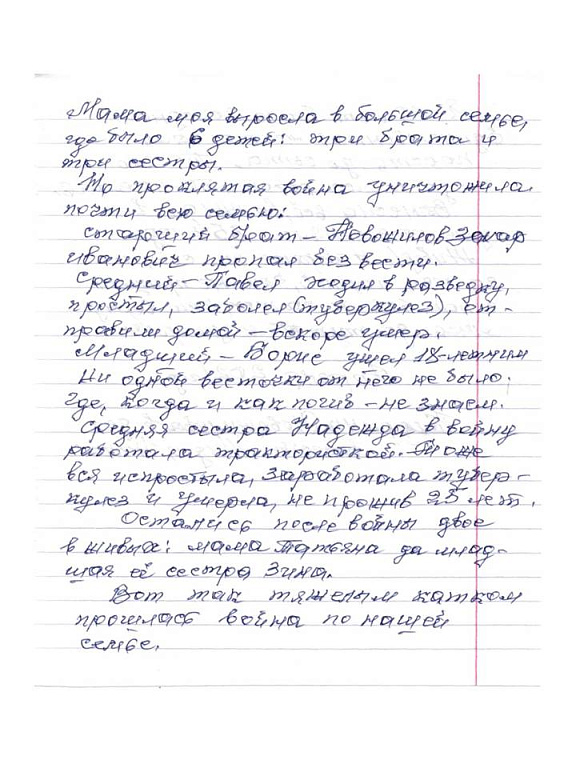 Мама моя выросла в большой семье,
где было 6 детей: три брата и
три сестры.
Но проклятая война уничтожила
почти всю семью:
старший брат – Новошилов Захар
Иванович пропал без вести.
Средний – Павел ходил в разведку,
простыл, заболел (туберкулез), от-
правили домой – вскоре умер.
Младший – Борис ушел 18-летним
Ни одной весточки от него не было.
Где, когда и как погиб – не знаем.
Средняя сестра Надежда в войну
работала трактористкой. Тоже
вся испростыла, заработала тубер-
кулез и умерла, не прожив 25 лет.
Остались после войны двое
в живых: мама Татьяна да млад-
шая её сестра Зина.
Вот так тяжелым катком
прошлась война по нашей
семье.